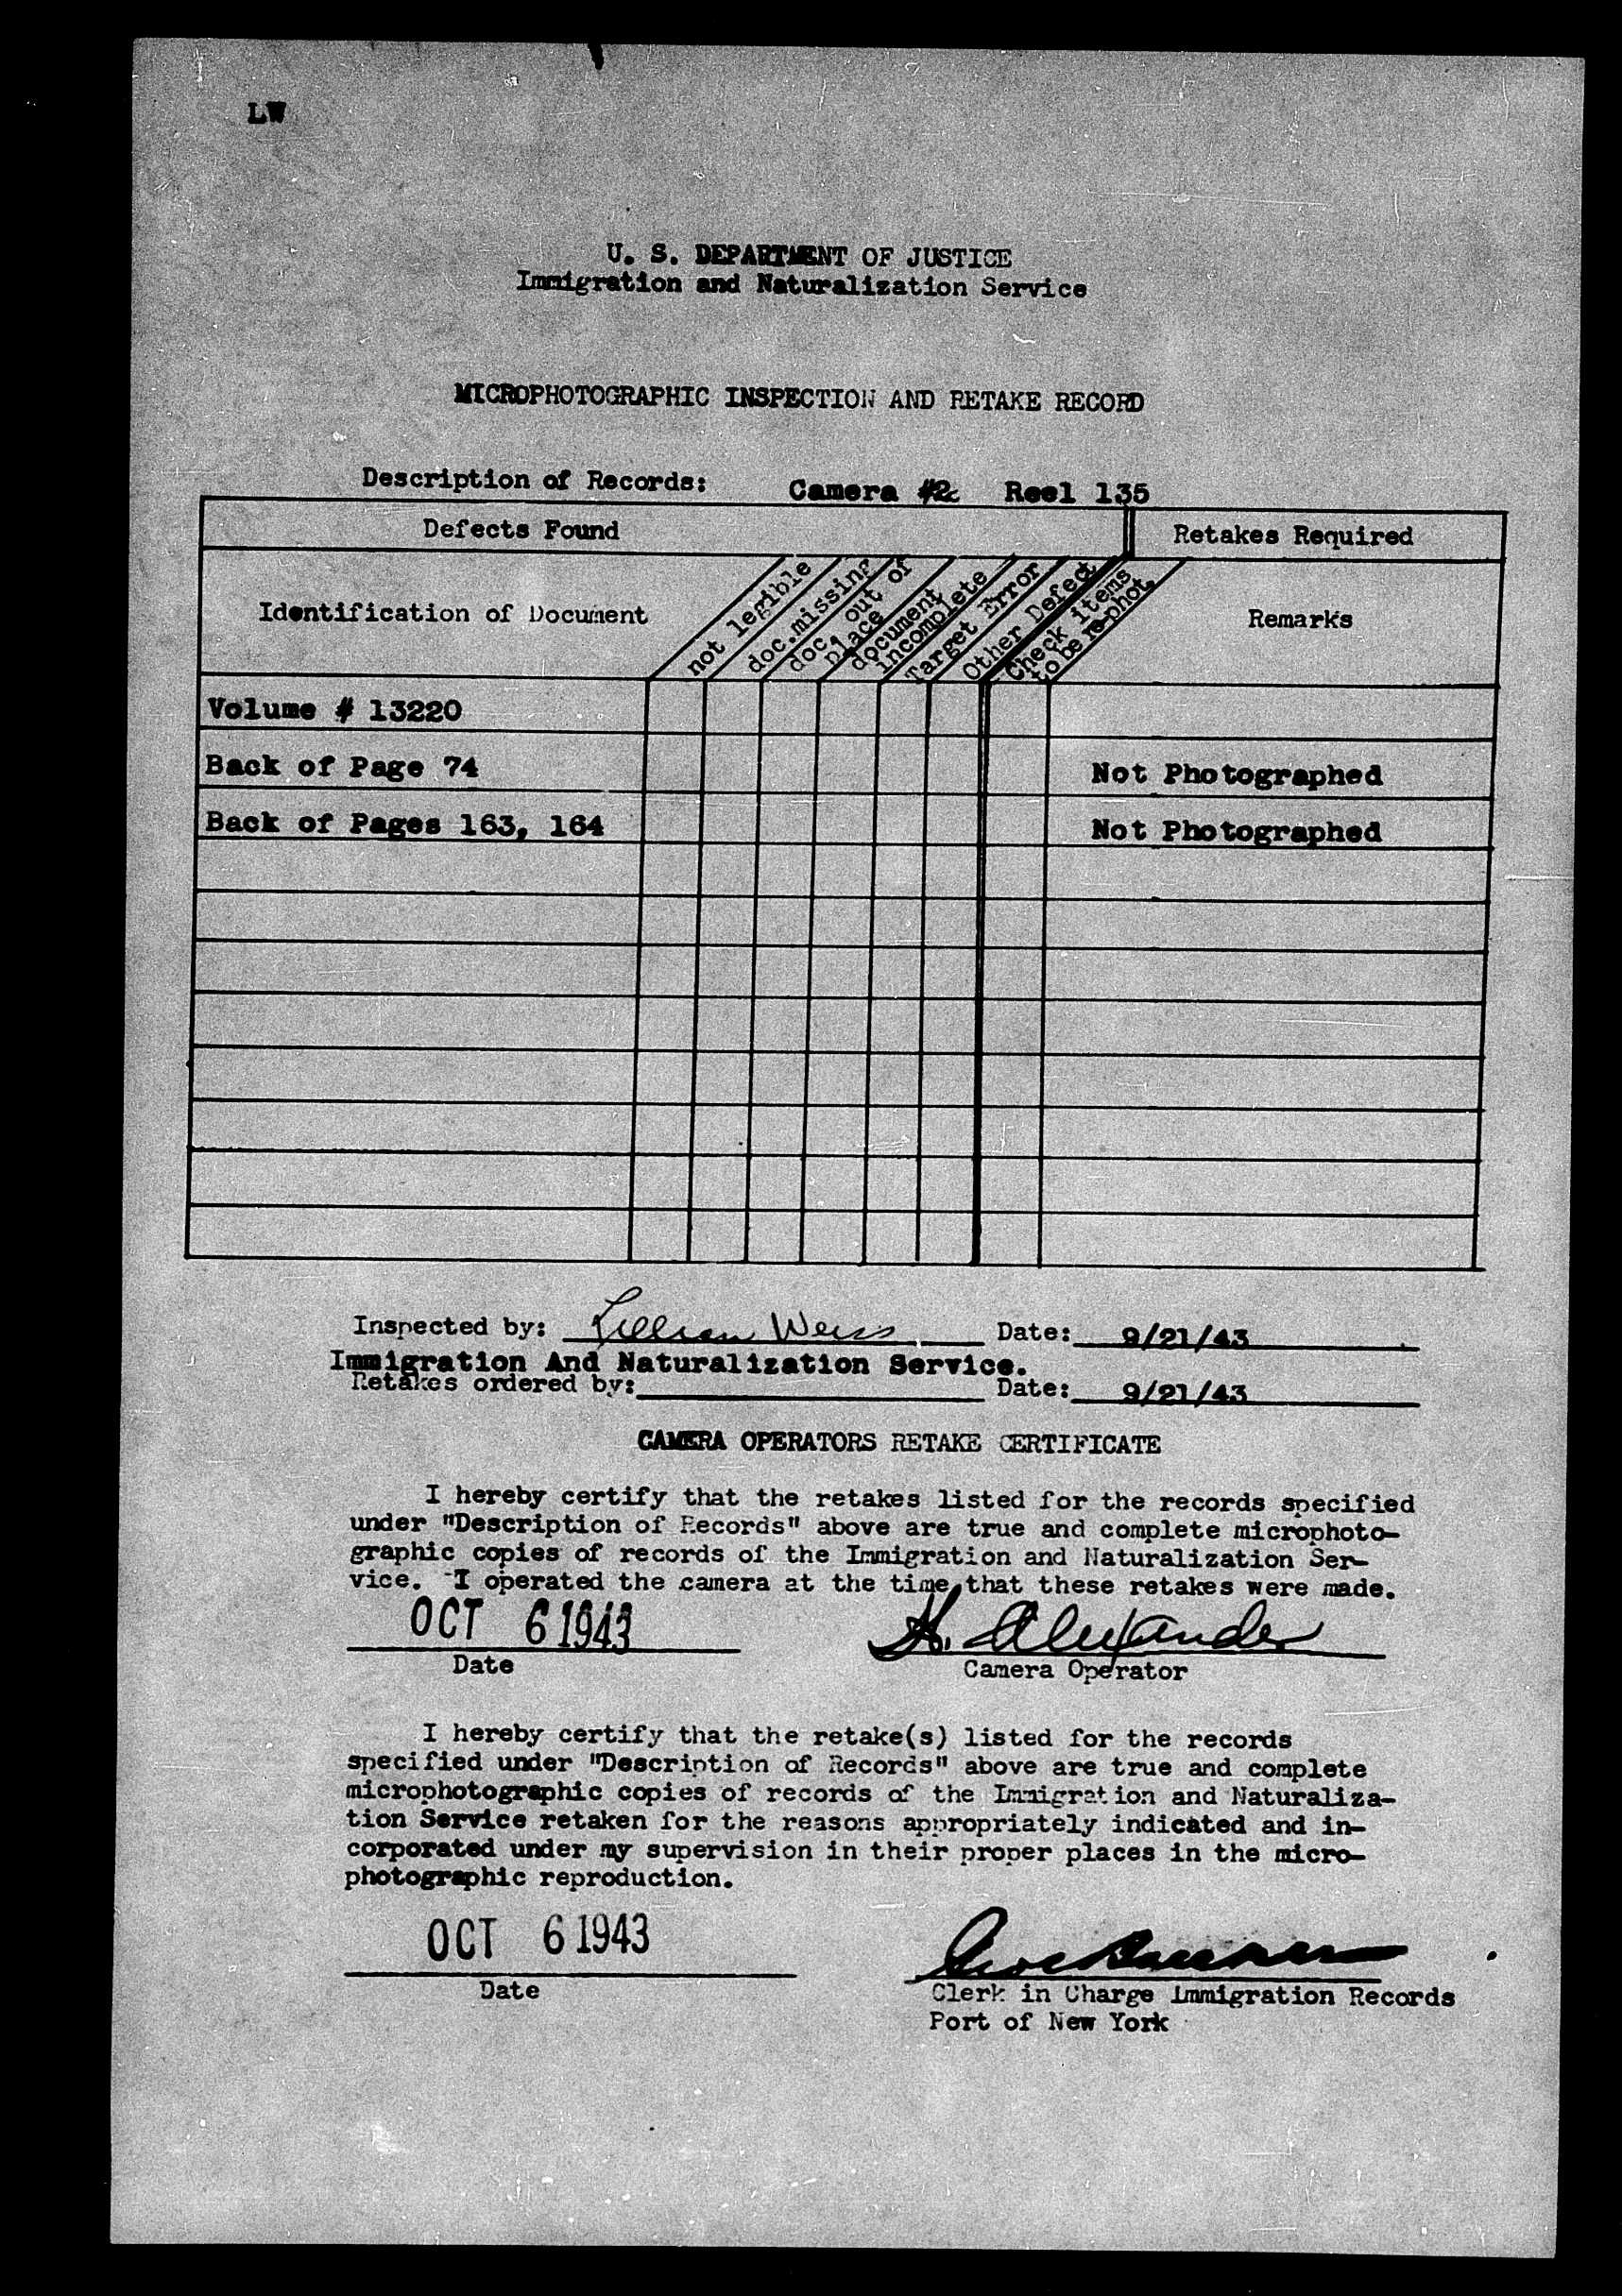 LW
U. S. DEPARTMENT OF JUSTICE
Immigration and Naturalization Service
MICROPHOTOGRAPHIC INSPECTION AND RETAKE RECORD
Description of Records: Camera #2 Reel 135
Defects Found Retakes Required
Identification of Document
not legible
doc.missing
doc. out of
place
document
incomplete
Target Error
Other Defect
Check items
to be re-phot.
Remarks
Volume # 13220
Back of Page 74 Not Photographed
Back of Pages 163, 164 Not Photographed
Inspected by: Lillian Weiss Date: 9/21/43
Immigration And Naturalization Service.
Retakes ordered by: Date: 9/21/43
CAMERA OPERATORS RETAKE CERTIFICATE
I hereby certify that the retakes listed for the records specified
under "Description of Records" above are true and complete microphoto-
graphic copies of records of the Immigration and Naturalization Ser-
vice. I operated the camera at the time that these retakes were made.
OCT 6 1943 H. Alexander
Date Camera Operator
I hereby certify that the retake(s) listed for the records
specified under "Description of Records" above are true and complete
microphotographic copies of records of the Immigration and Naturaliza-
tion Service retaken for the reasons appropriately indicated and in-
corporated under my supervision in their proper places in the micro-
photographic reproduction.
OCT 6 1943
Date Clerk in Charge Immigration Records
Port of New York